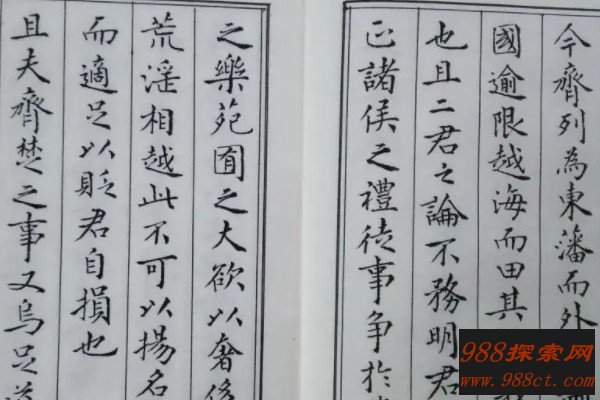 今齊列為東藩而外
國逾限越海而田其
也且二君之論不務明君
正諸侯之禮徒事爭於
之樂苑囿之大欲以奢侈
荒淫相越此不可以揚名
而適足以貶君自損也
且夫齊楚之事又烏足道
988探索网
www.988ct.com